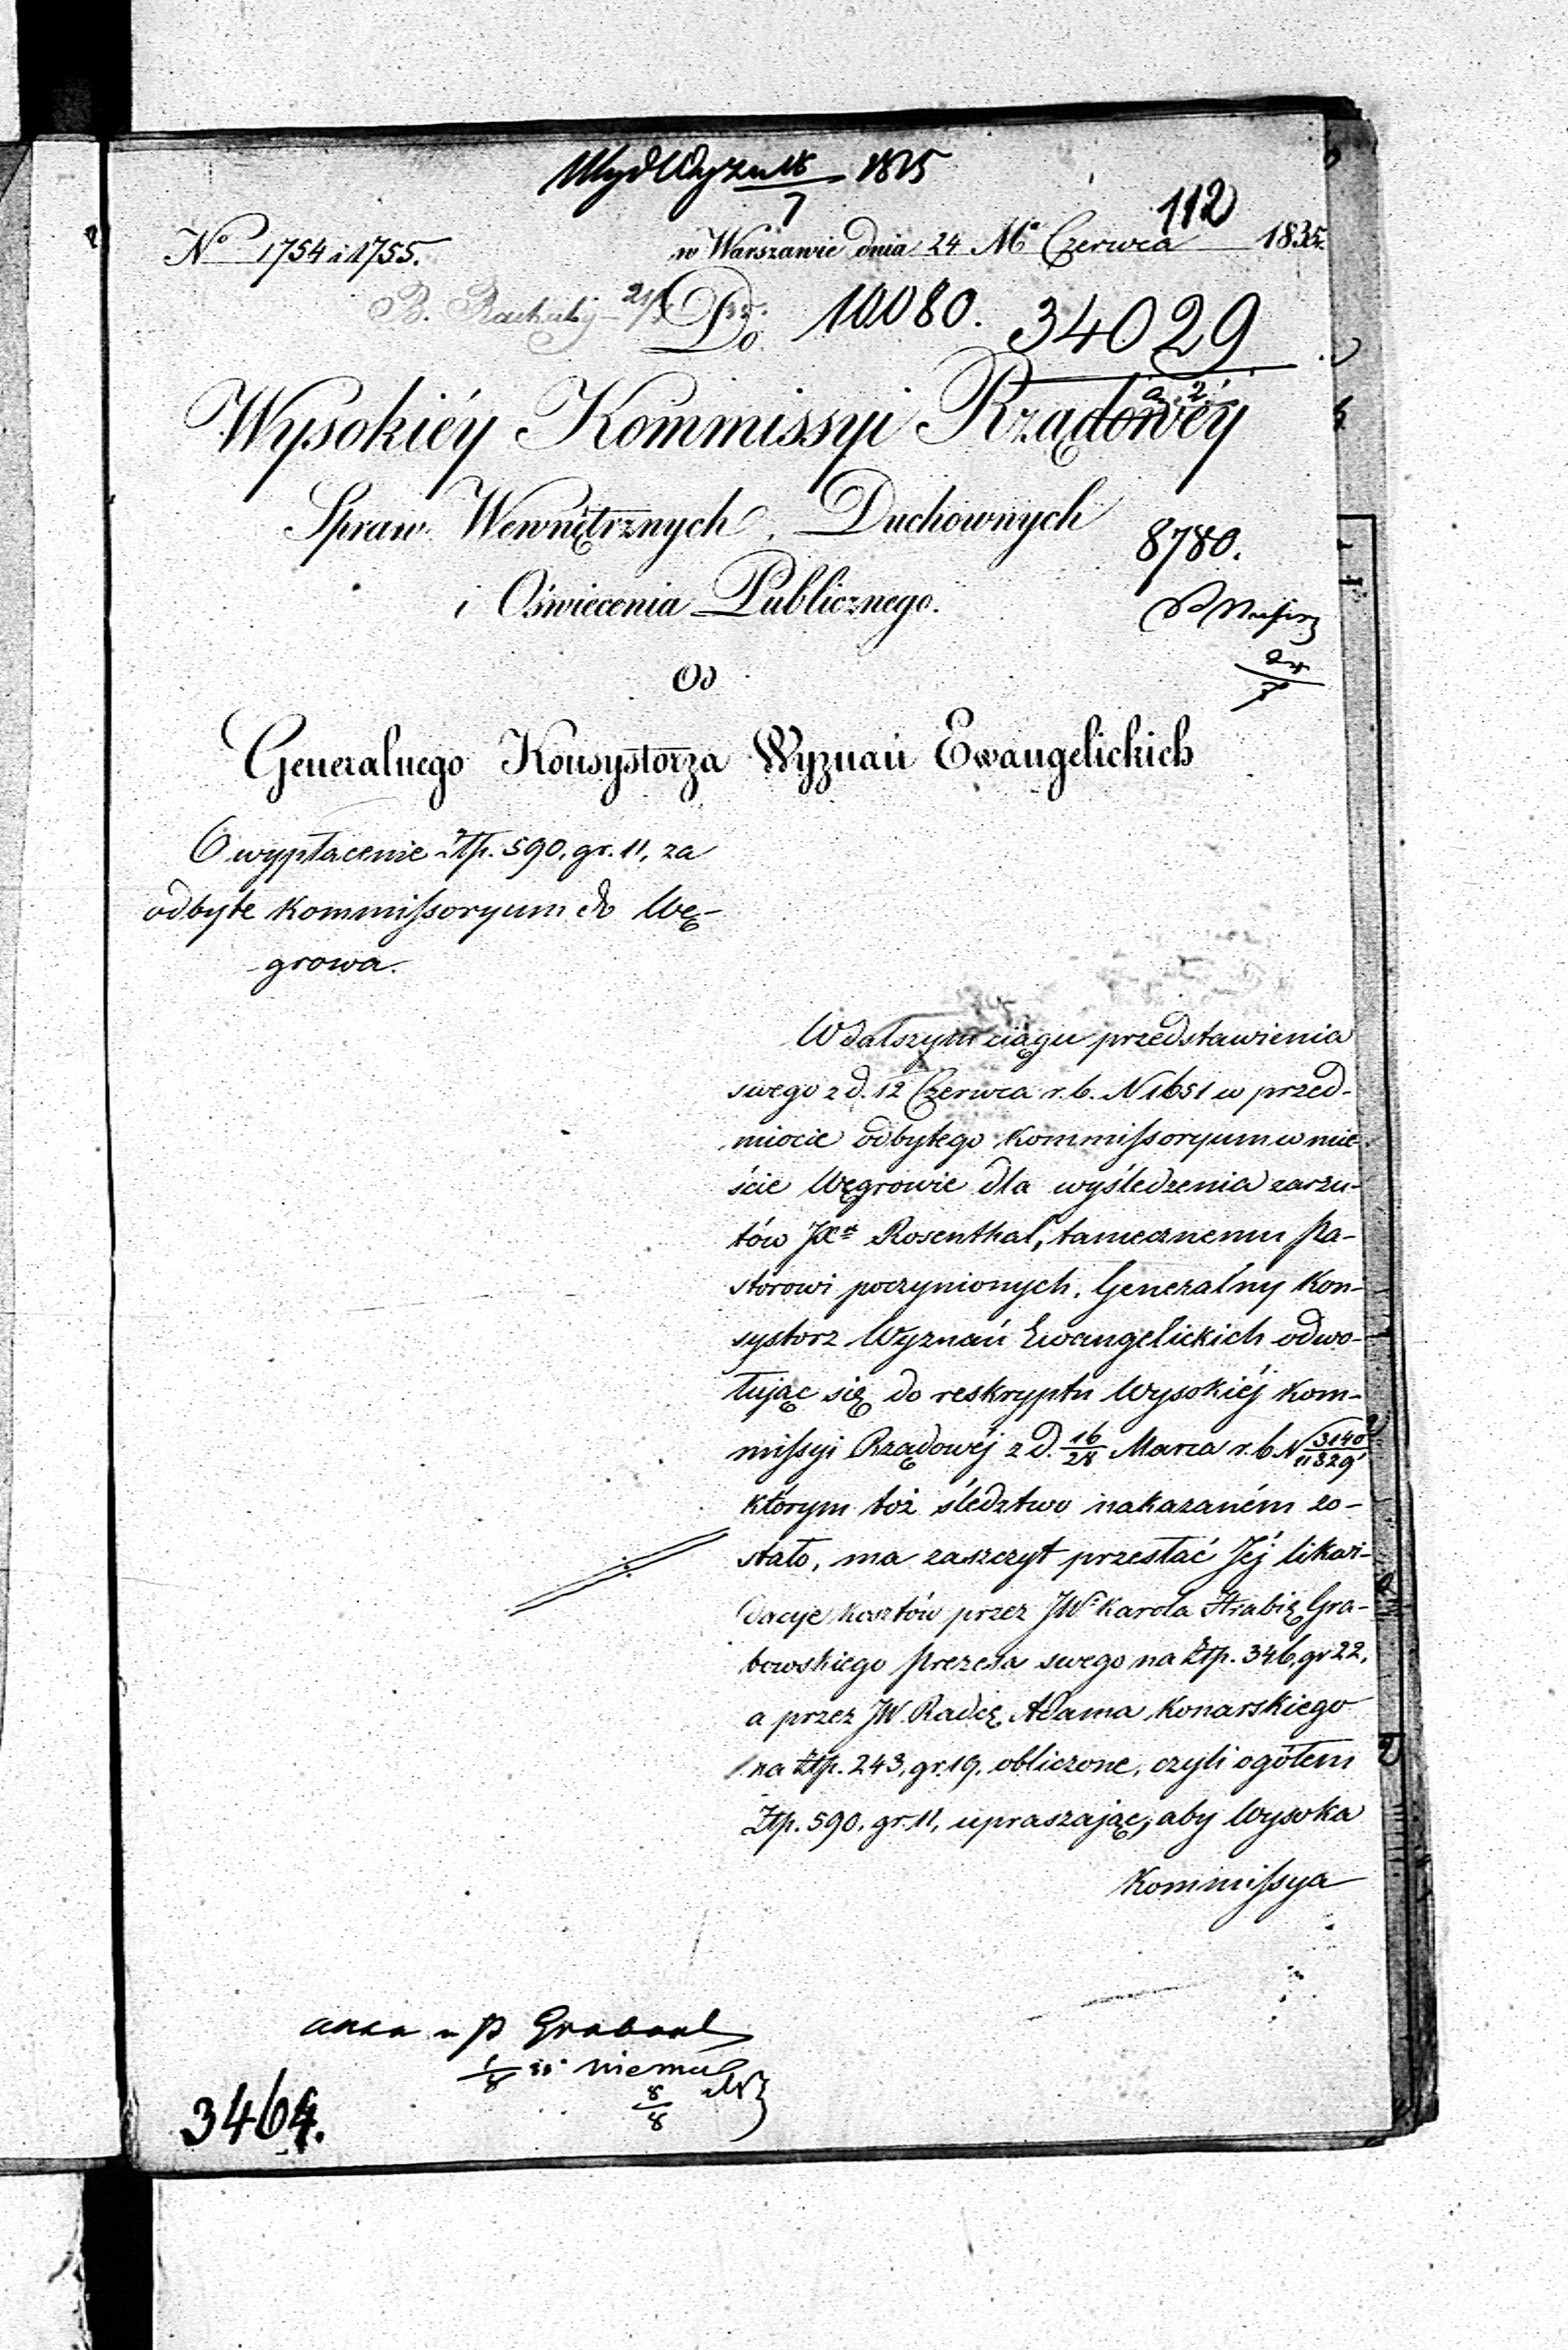 112
№ 1754 i 1755. w Warszawie dnia 24 Mca Czerwca 1835.
Do 10080. 34029
Wysokiéy Kommissyi Rządowéy
Spraw Wewnętrznych, Duchownych
8780.
i Oświecenia Publicznego.
Od
Generalnego Konsystorza Wyznań Ewangelickich
O wypłacenie Złp. 590, gr. 11, za
odbyte Kommissoryum do Wę-
growa.
W dalszym ciągu przedstawienia
swego z d. 12 Czerwca r. b. N 1651 w przed-
miocie odbytego Kommissoryum w mie-
ście Węgrowie dla wyśledzenia zarzu-
tów JXa Rosenthal, tamecznemu Pa-
storowi poczynionych, Generalny Kon-
systorz Wyznań Ewangelickich odwo-
łując się do reskryptu Wysokiéj Kom-
missyi Rządowéj z d. 16/28 Marca r. b. N 3140/11329
którym toż śledztwo nakazaném zo-
stało, ma zaszczyt przesłać Jéj likwi-
dacye kosztów przez JWo Karola Hrabię Gra-
bowskiego Prezesa swego na Złp. 346, gr 22,
a przez JW Radcę Adama Konarskiego
na Złp. 243, gr. 19, obliczone, czyli ogółem
Złp. 590, gr. 11, upraszając, aby Wysoka
Kommissya
1/8 35 niemal
8/8
3464.